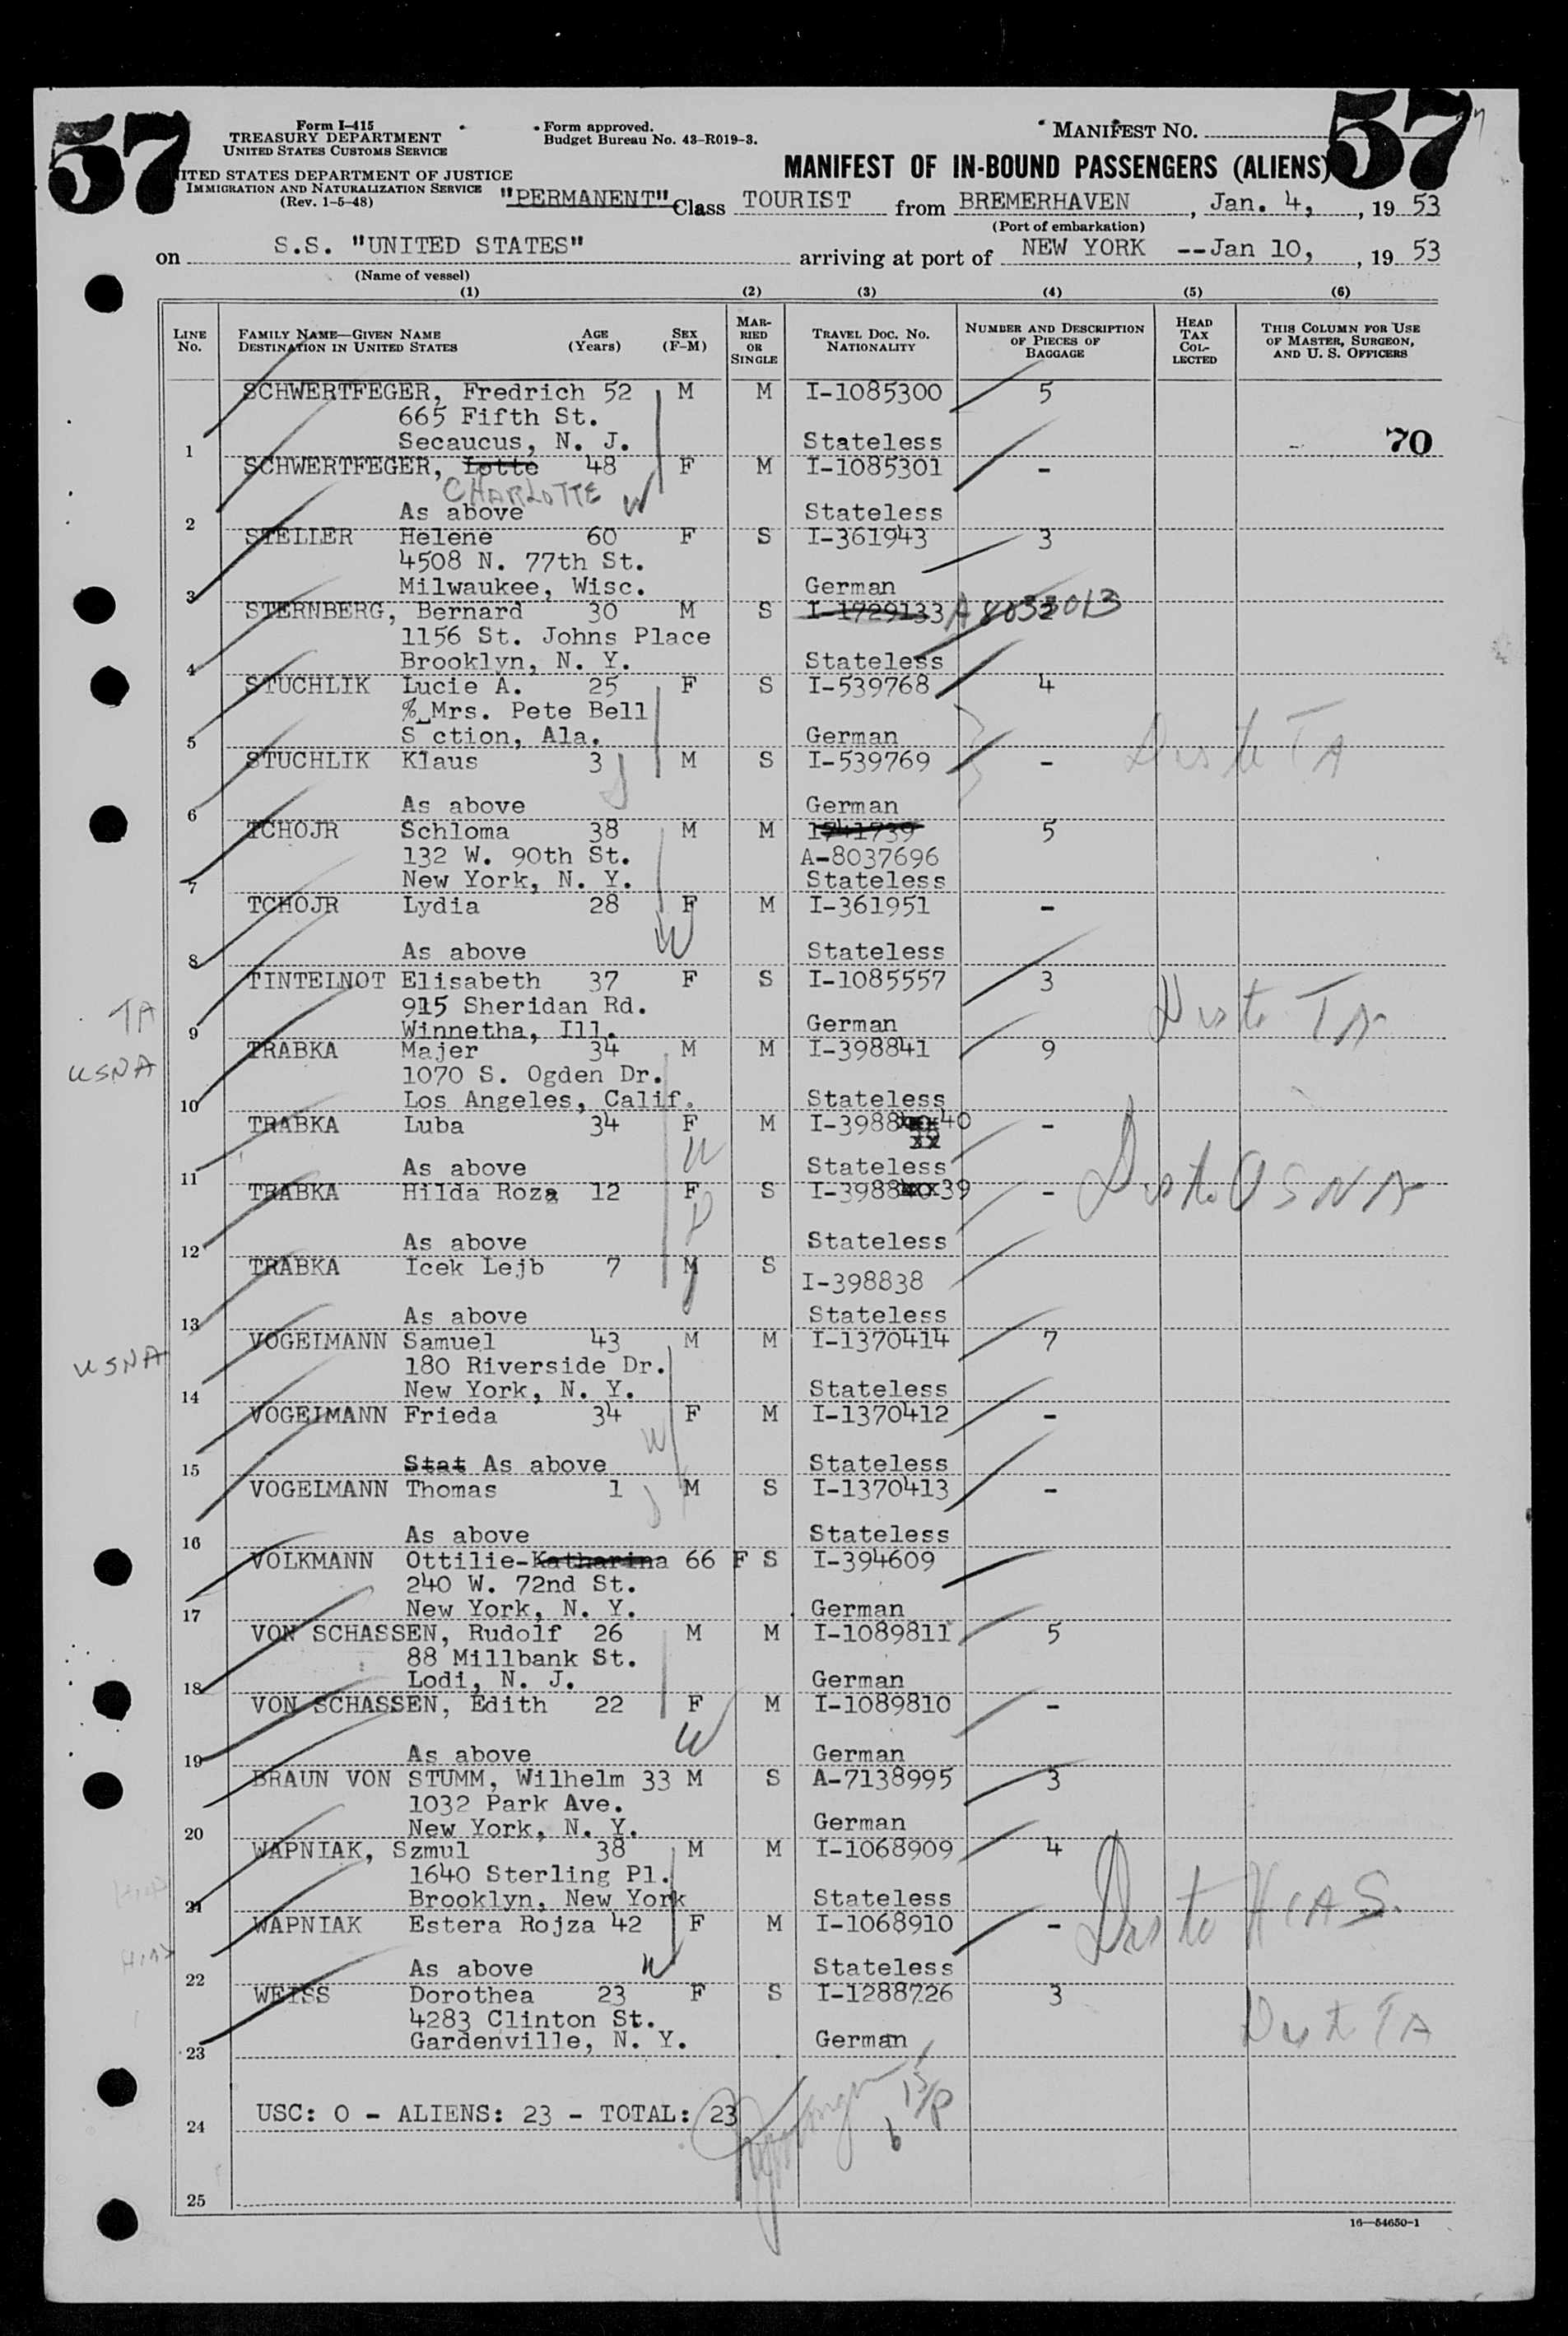 57
Form I-415
TREASURY DEPARTMENT
UNITED STATES CUSTOMS SERVICE
ITED STATES DEPARTMENT OF JUSTICE
IMMIGRATION AND NATURALIZATION SERVICE
(Rev. 1-5-48)
Form approved.
Budget Bureau No. 43-R019-3.
MANIFEST NO.
57
MANIFEST OF IN-BOUND PASSENGERS (ALIENS)
"PERMANENT" Class TOURIST from BREMERHAVEN, Jan. 4, , 19 53
(Port of embarkation)
on S.S. "UNITED STATES" arriving at port of NEW YORK --Jan 10, , 19 53
(Name of vessel)
(1) (2) (3) (4) (5) (6)
LINE No.
FAMILY NAME—GIVEN NAME
DESTINATION IN UNITED STATES
AGE (Years)
SEX (F-M)
MARRIED OR SINGLE
TRAVEL DOC. NO. NATIONALITY
NUMBER AND DESCRIPTION OF PIECES OF BAGGAGE
HEAD TAX COLLECTED
THIS COLUMN FOR USE OF MASTER, SURGEON, AND U. S. OFFICERS
SCHWERTFEGER, Fredrich 52 M M I-1085300 5
665 Fifth St.
1 Secaucus, N. J. Stateless 70
SCHWERTFEGER, Lotte 48 F M I-1085301 -
CHARLOTTE W
2 As above Stateless
STELLER Helene 60 F S I-361943 3
4508 N. 77th St.
3 Milwaukee, Wisc. German
STERNBERG, Bernard 30 M S I-1729133 A8033013 2
1156 St. Johns Place
4 Brooklyn, N. Y. Stateless
STUCHLIK Lucie A. 25 F S I-539768 4
% Mrs. Pete Bell
5 S ction, Ala. German
STUCHLIK Klaus 3 M S I-539769 - Dis to TA
6 As above German
TCHOJR Schloma 38 M M 1741739 5
132 W. 90th St. A-8037696
7 New York, N. Y. Stateless
TCHOJR Lydia 28 F M I-361951 -
W
8 As above Stateless
TINTELNOT Elisabeth 37 F S I-1085557 3
915 Sheridan Rd.
TA 9 Winnetha, Ill. German Dis to TA
TRABKA Majer 34 M M I-398841 9
USNA 1070 S. Ogden Dr.
10 Los Angeles, Calif. Stateless
TRABKA Luba 34 F M I-3988 40 -
W
11 As above Stateless
TRABKA Hilda Roza 12 F S I-3988 39 - Dis to USNA
12 As above Stateless
TRABKA Icek Lejb 7 M S I-398838
13 As above Stateless
VOGELMANN Samuel 43 M M I-1370414 7
USNA 180 Riverside Dr.
14 New York, N. Y. Stateless
VOGELMANN Frieda 34 F M I-1370412 -
W
15 Stat As above Stateless
VOGELMANN Thomas 1 M S I-1370413 -
16 As above Stateless
VOLKMANN Ottilie-Katharina 66 F S I-394609
240 W. 72nd St.
17 New York, N. Y. German
VON SCHASSEN, Rudolf 26 M M I-1089811 5
88 Millbank St.
18 Lodi, N. J. German
VON SCHASSEN, Edith 22 F M I-1089810 -
W
19 As above German
BRAUN VON STUMM, Wilhelm 33 M S A-7138995 3
1032 Park Ave.
20 New York, N. Y. German
WAPNIAK, Szmul 38 M M I-1068909 4
1640 Sterling Pl.
21 Brooklyn, New York Stateless
WAPNIAK Estera Rojza 42 F M I-1068910 - Dis to HIAS.
HIAS W
22 As above Stateless
WEISS Dorothea 23 F S I-1288726 3
4283 Clinton St. Dis to TA
23 Gardenville, N. Y. German
24 USC: 0 - ALIENS: 23 - TOTAL: 23
25
16—54650-1